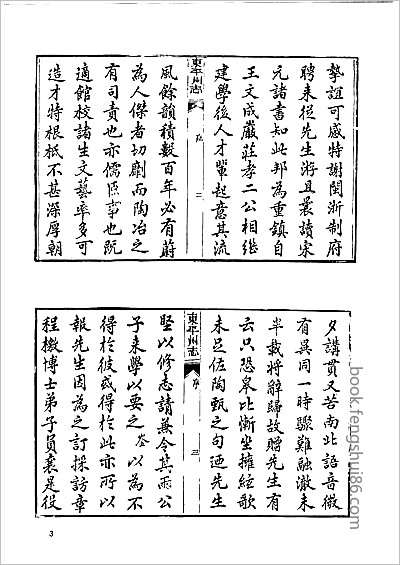 摯誼可感特謝閩浙制府
聘来從先生游且晨讀宋
元諸書知此邦為重鎮自
王文成嚴莊孝二公相繼
建學後人才輩起意其流
東平州志 序 三
風餘韻積數百年必有蔚
為人傑者切劘而陶冶之
有司責也亦儒臣事也既
適館校諸生文藝率多可
造才特根柢不甚深厚朝
夕講貫又苦南北語音微
有異同一時驟難融澈未
半載將辭歸故贈先生有
云只恐皋比慚坐擁絃歌
未足佐陶甄之句迺先生
東平州志 序 三
堅以修志請兼令其兩公
子来學以要之盖以為不
得於彼或得於此亦所以
報先生因為之訂採訪章
程檄博士弟子員襄是役
3
book.fengshui86.com